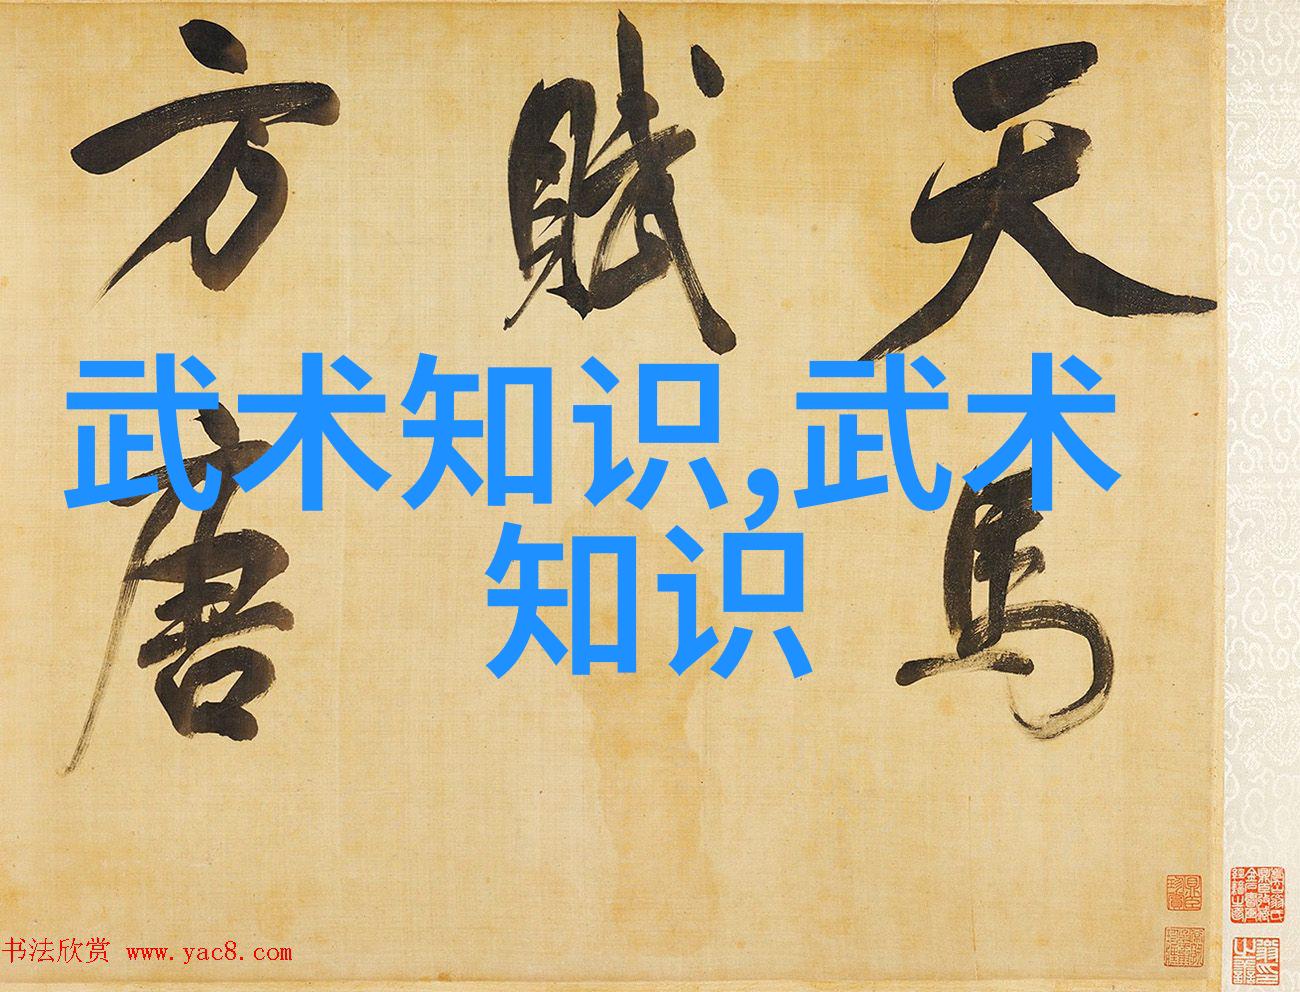 天馬
賦
方
唐
武术知识,武术
知识
书法欣赏 www.yac8.com